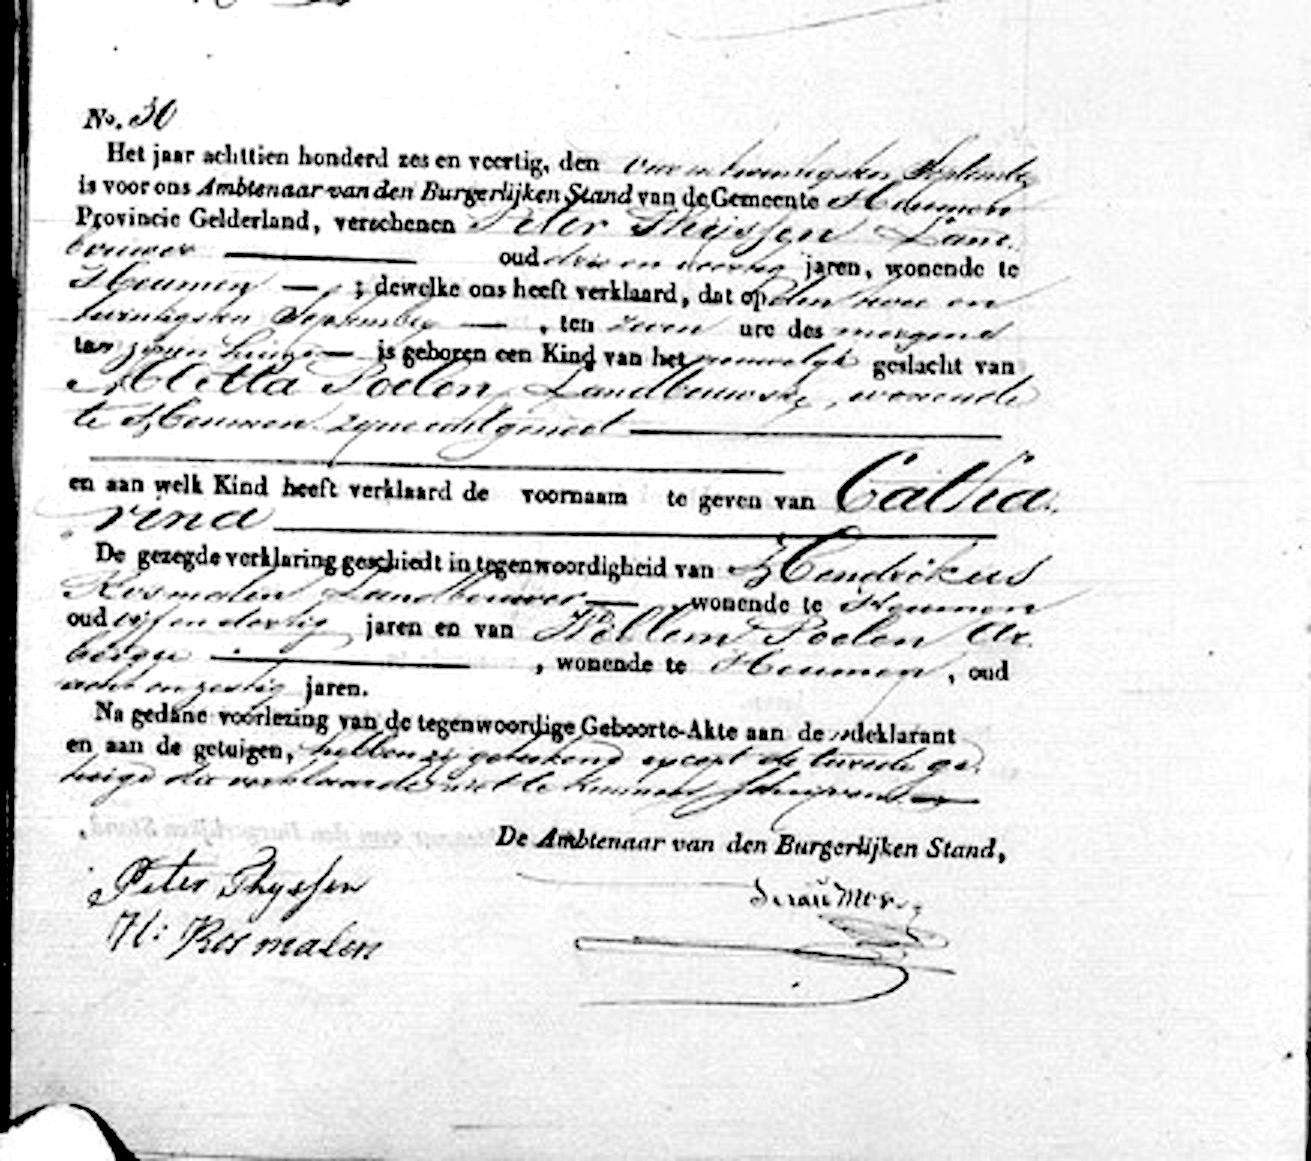 No. 30
Het jaar achttien honderd zes en veertig, den en twintigsten September
is voor ons Ambtenaar van den Burgerlijken Stand van de Gemeente Heumen
Provincie Gelderland, verschenen Peter Thijssen Land
bouwer oud drie en veertig jaren, wonende te
Heumen ; dewelke ons heeft verklaard, dat op den twee en
twintigsten September , ten zeven ure des morgens
ten zijnen huize is geboren een Kind van het vrouwelijk geslacht van
Poelen, Landbouwster, wonende
te Heumen zijne echtgenoot
en aan welk Kind heeft verklaard de voornaam te geven van Catha
rina
De gezegde verklaring geschiedt in tegenwoordigheid van Hendrikus
Rosmalen Landbouwer wonende te Heumen
oud vijf en dertig jaren en van Willem Poelen Ar
beider , wonende te Heumen , oud
acht en zestig jaren.
Na gedane voorlezing van de tegenwoordige Geboorte-Akte aan de deklarant
en aan de getuigen, hebben zij getekend except de tweede ge
tuige die verklaarde niet te kunnen schrijven
De Ambtenaar van den Burgerlijken Stand,
Peter Thyssen
H: Rosmalen